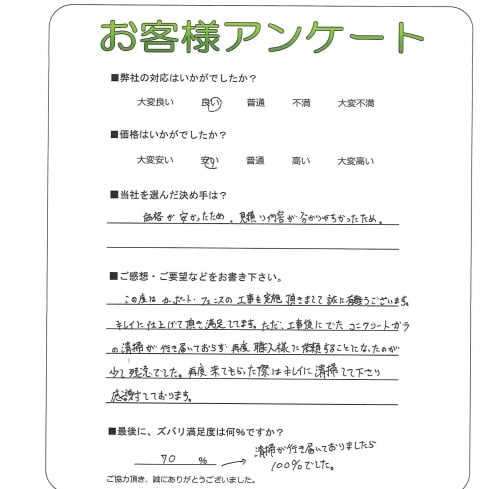 お客様アンケート
■弊社の対応はいかがでしたか？
大変良い 良い 普通 不満 大変不満
■価格はいかがでしたか？
大変安い 安い 普通 高い 大変高い
■当社を選んだ決め手は？
価格が安かったため、見積り内容が分かりやすかったため。
■ご感想・ご要望などをお書き下さい。
この度はカーポート・フェンスの工事を実施頂きまして誠に有難うございます。
キレイに仕上げて頂き満足してます。ただ、工事後にでたコンクリートガラ
の清掃が行き届いておらず再度職人様に依頼することになったのが
少し残念でした。再度来てもらった際はキレイに清掃して下さり
感謝しております。
■最後に、ズバリ満足度は何%ですか？
70 % → 清掃が行き届いておりましたら
100%でした。
ご協力頂き、誠にありがとうございました。